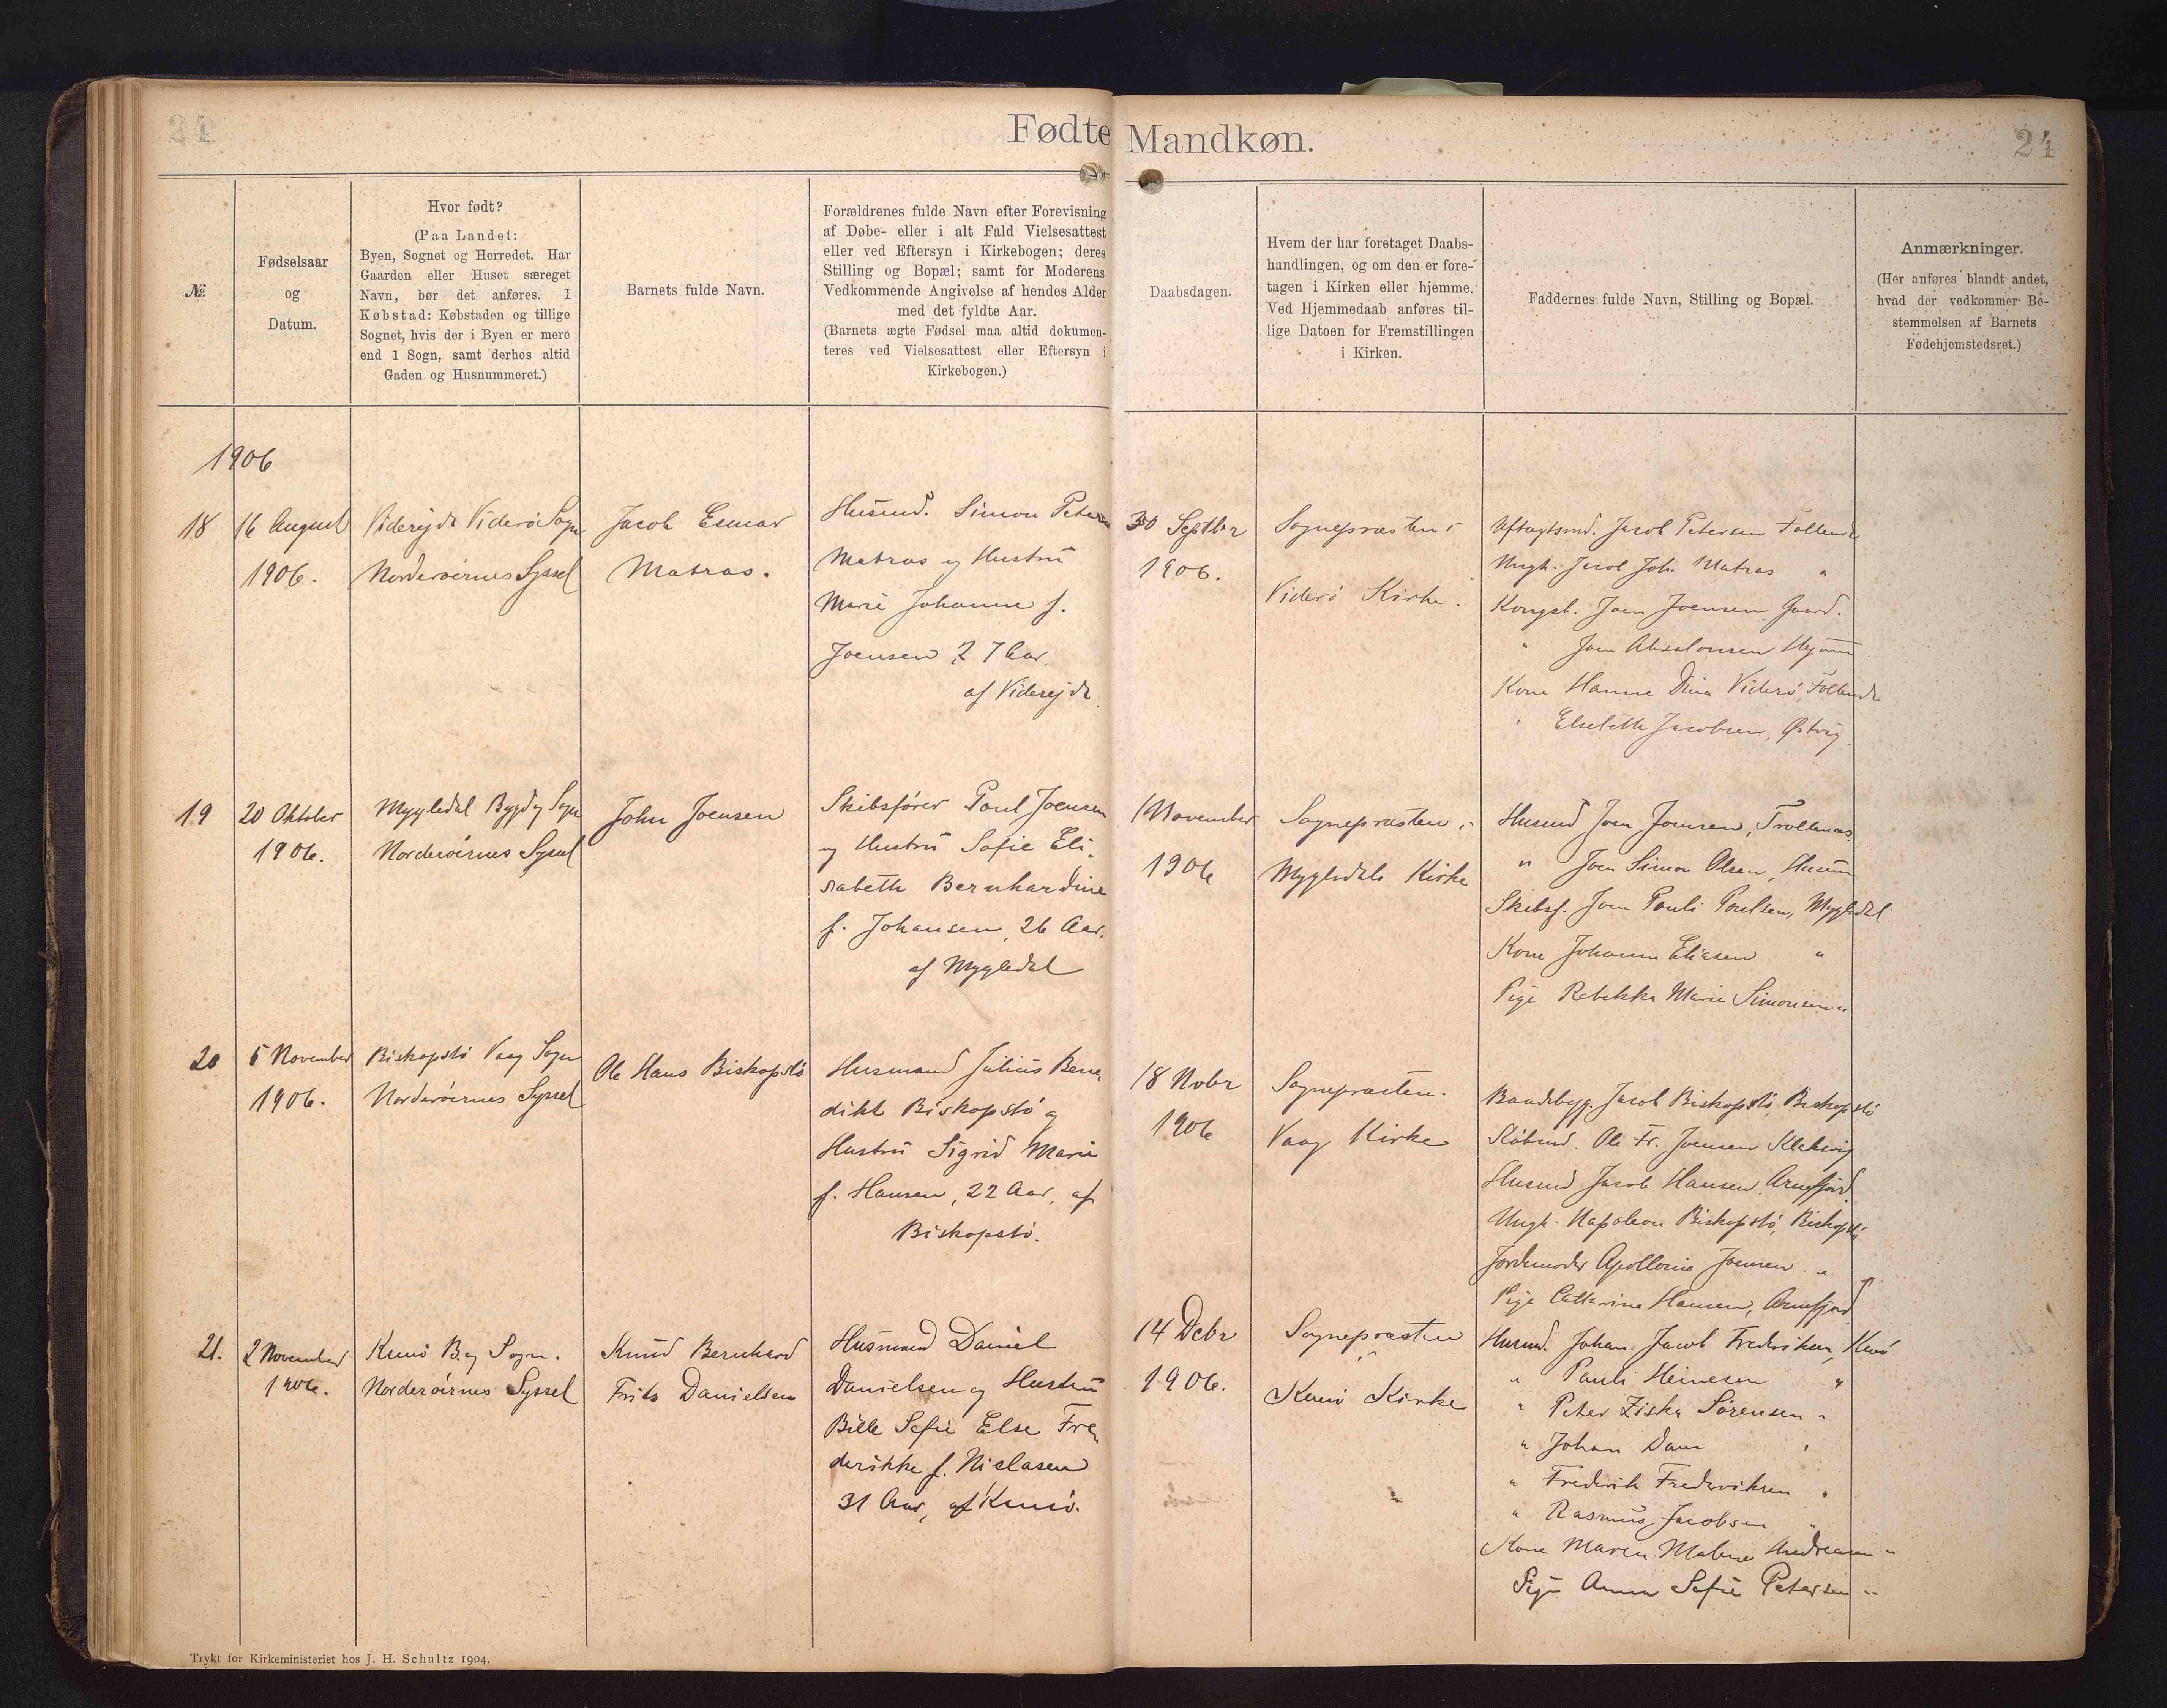 24
Fødte
Mandkøn.
24
№.
Fødselsaar
og
Datum.
Hvor født?
(Paa Landet:
Byen, Sognet og Herredet. Har
Gaarden eller Huset særeget
Navn, bør det anføres. I
Købstad: Købstaden og tillige
Sognet, hvis der i Byen er mere
end 1 Sogn, samt derhos altid
Gaden og Husnummeret.)
Barnets fulde Navn.
Forældrenes fulde Navn efter Forevisning
af Døbe- eller i alt Fald Vielsesattest
eller ved Eftersyn i Kirkebogen; deres
Stilling og Bopæl; samt for Moderens
Vedkommende Angivelse af hendes Alder
med det fyldte Aar.
(Barnets ægte Fødsel maa altid dokumen-
teres ved Vielsesattest eller Eftersyn i
Kirkebogen.)
Daabsdagen.
Hvem der har foretaget Daabs-
handlingen, og om den er fore-
tagen i Kirken eller hjemme.
Ved Hjemmedaab anføres til-
lige Datoen for Fremstillingen
i Kirken.
Faddernes fulde Navn, Stilling og Bopæl.
Anmærkninger.
(Her anføres blandt andet,
hvad der vedkommer Be-
stemmelsen af Barnets
Fødehjemstedsret.)
1906
18
16 August
1906.
Viderejde Viderø Sogn
Norderøernes Syssel
Jacob Esmar
Matras.
Husmd. Simon Petersen
Matras og Hustru
Marie Johanne f.
Joensen 27 Aar
af Viderejde.
30 Septbr
1906.
Sognepræsten i
Viderø Kirke.
Aftagtsmd. Jacob Petersen
Ungk. Jacob Joh. Matras "
Kongsb. Joen Joensen, Gaard.
" Joen Absalonsen
Kone Hanne Dina Viderø,
" Elsebeth Jacobsen, Østvig
19
20 Oktober
1906.
Mygledal Bygd og Sogn
Norderøernes Syssel
John Joensen
Skibsfører Poul Joensen
og Hustru Sofie Eli-
sabeth Bernhardine
f. Johansen, 26 Aar,
af Mygledal
1 November
1906
Sognepræsten i
Mygledals Kirke
Husmd Joen Joensen, Trollenæs
" Joen Simon Olsen, Husum
Skibsf. Joen Pauli Poulsen, Mygledal
Kone Johanne Eliasen "
Pige Rebekka Marie Simonsen "
20
5 November
1906.
Biskopstø Vaag Sogn
Norderøernes Syssel
Ole Hans Biskopstø
Husmand Julius Bene-
dikt Biskopstø og
Hustru Sigrid Marie
f. Hansen, 22 Aar, af
Biskopstø.
18 Novbr
1906
Sognepræsten.
Vaag Kirke
Baadebyg. Jacob Biskopstø, Biskopstø
Købmd. Ole Fr. Joensen Klaksvig
Husmd Jacob Hansen, Arnefjord
Ungk. Napoleon Biskopstø, Biskopstø
Jordemoder Apollonie Joensen "
Pige Cathrine Hansen, Arnefjord
21.
2 November
1906.
Kunø B. og Sogn.
Norderøernes Syssel
Knud Bernhard
Frits Danielsen
Husmand Daniel
Danielsen og Hustru
Bille Sofie Else Fre-
derikke f. Niclasen
31 Aar, af Kunø.
14 Decbr
1906.
Sognepræsten
i
Kunø Kirke
Husmd. Johan Jacob Frederiksen, Kunø
" Pauli Heinesen "
" Peter Ziska Sørensen "
" Johan Dam "
" Frederik Frederiksen "
" Rasmus Jacobsen "
Kone Maren Malene Andreasen "
Pige Anna Sofie Petersen "
Trykt for Kirkeministeriet hos J. H. Schultz 1904.